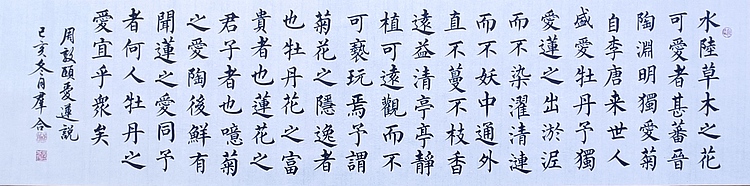 水陸草木之花
可愛者甚蕃晉
陶淵明獨愛菊
自李唐来世人
盛愛牡丹予獨
愛蓮之出淤泥
而不染濯清漣
而不妖中通外
直不蔓不枝香
遠益清亭亭靜
植可遠觀而不
可褻玩焉予謂
菊花之隱逸者
也牡丹花之富
貴者也蓮花之
君子者也噫菊
之愛陶後鮮有
聞蓮之愛同予
者何人牡丹之
愛宜乎衆矣
周敦頤愛蓮説
己亥冬月羣合